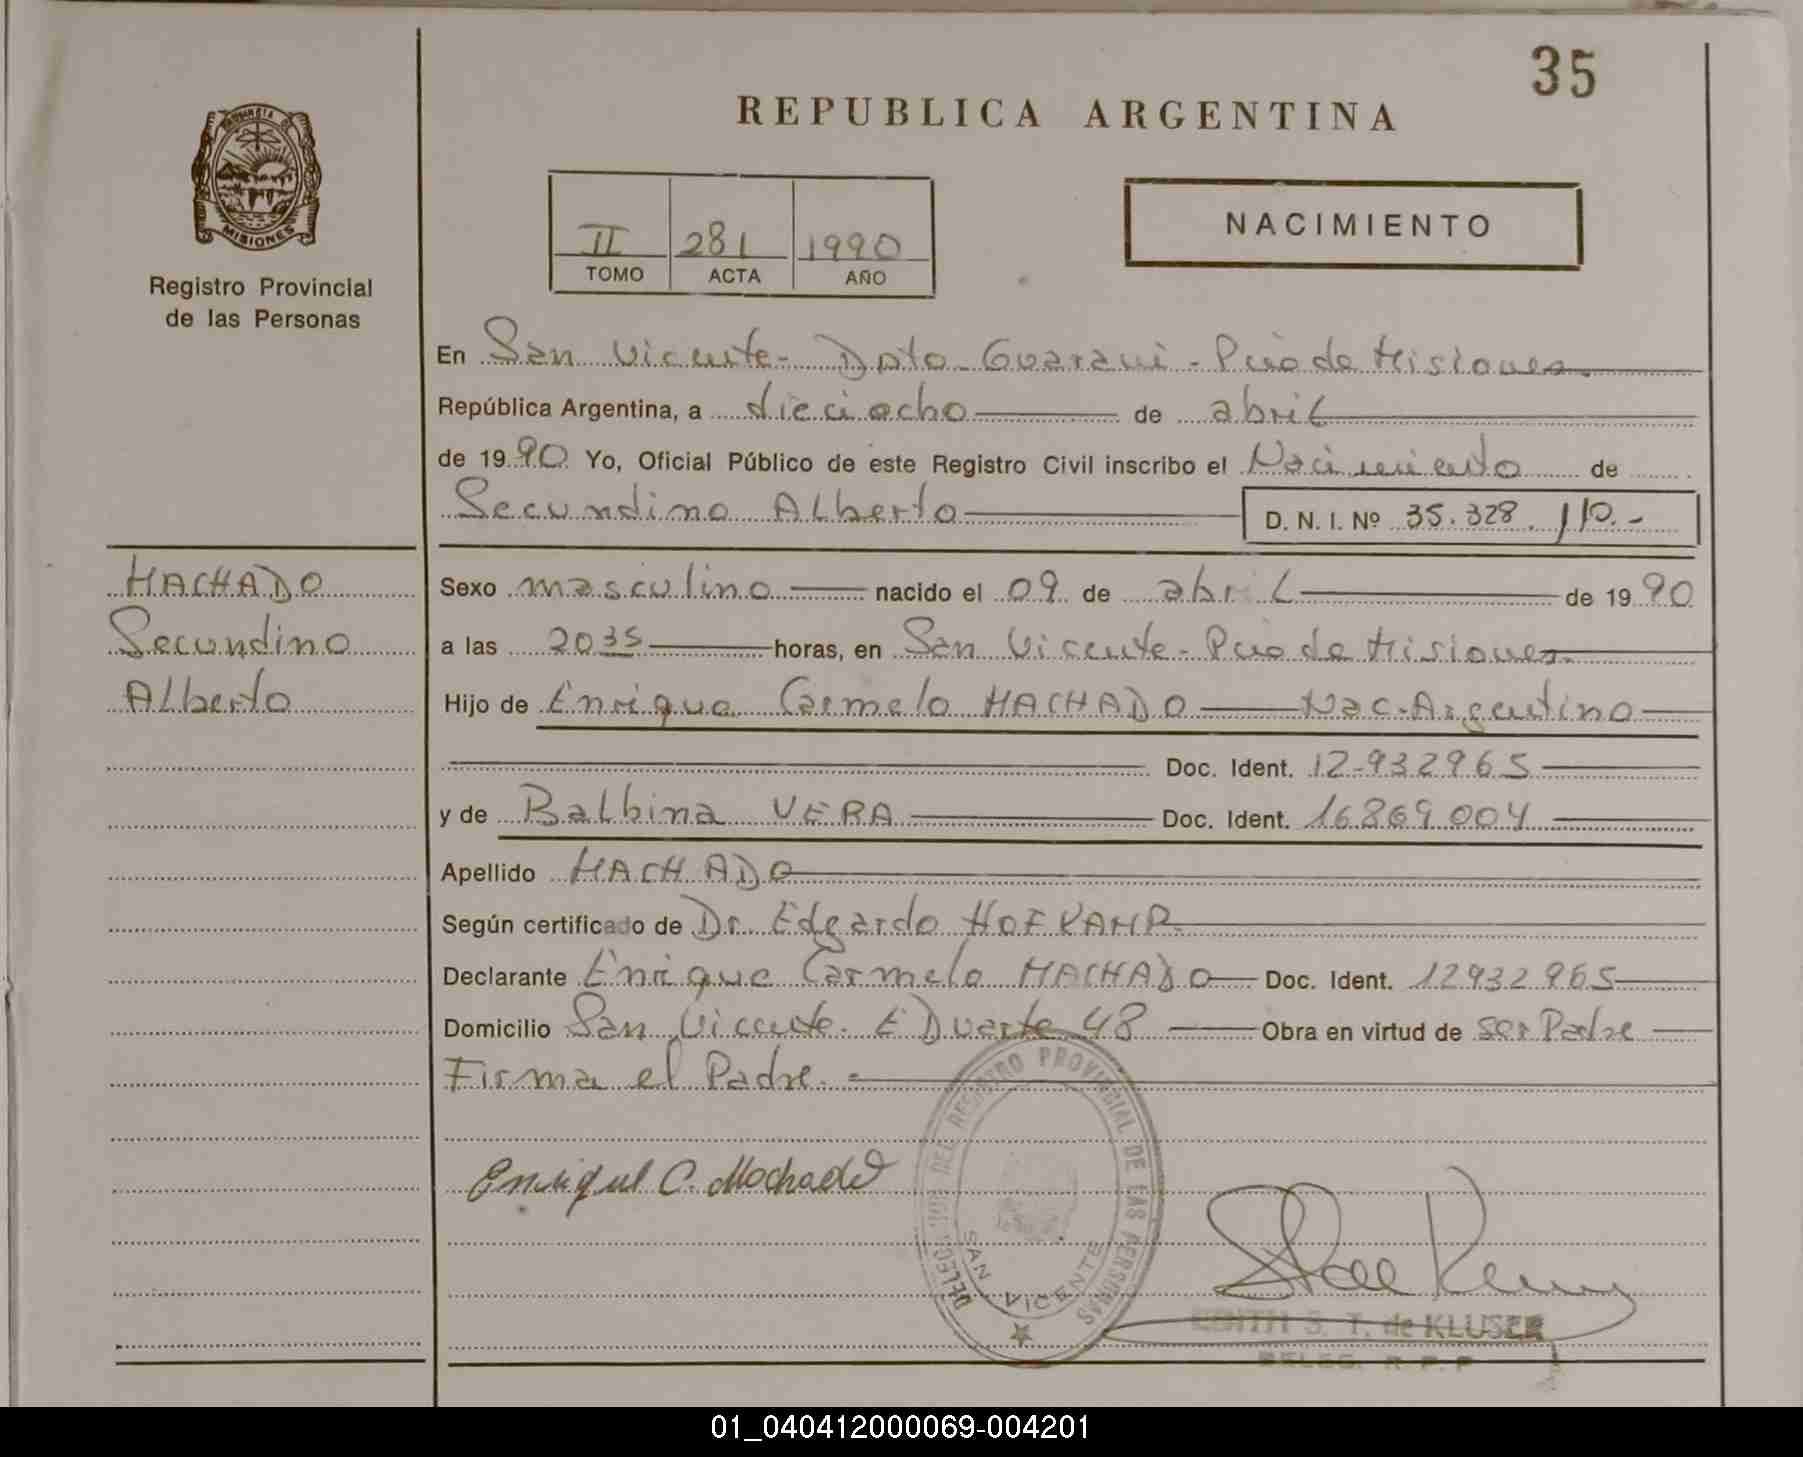 35
REPUBLICA ARGENTINA
PROVINCIA DE
MISIONES
Registro Provincial
de las Personas
II 281 1990
TOMO ACTA AÑO
NACIMIENTO
En San Vicente - Dpto Guarani - Pcia de Misiones.
República Argentina, a dieciocho de abril
de 1990 Yo, Oficial Público de este Registro Civil inscribo el Nacimiento de
Secundino Alberto D. N. I. Nº 35.328.110.-
MACHADO
Secundino
Alberto
Sexo masculino nacido el 09 de abril de 1990
a las 2035 horas, en San Vicente - Pcia de Misiones.
Hijo de Enrique Carmelo MACHADO Nac. Argentino
Doc. Ident. 12.932965
y de Balbina VERA Doc. Ident. 16869004
Apellido MACHADO
Según certificado de Dr. Edgardo HOFKAMP
Declarante Enrique Carmelo MACHADO Doc. Ident. 12932965
Domicilio San Vicente. E Duarte 48 Obra en virtud de ser Padre
Firma el Padre. -
Enrique C. Machado
DELEGACION DEL REGISTRO PROVINCIAL DE LAS PERSONAS
SAN VICENTE
EDITH S. T. de KLUSER
DELEG. R. P. P
01_040412000069-004201